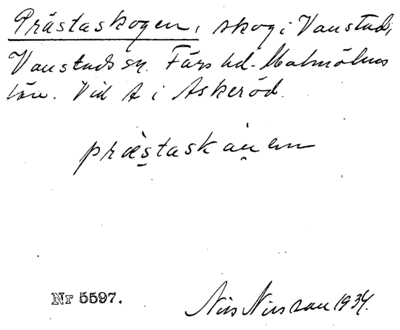 Prästaskogen, skog i Vanstad,
Vanstads sn. Färs hd. Malmöhus
län. Vid A i Askeröd.
præstaskåuen
Nr 5597.
Nils Nilsson 1934.